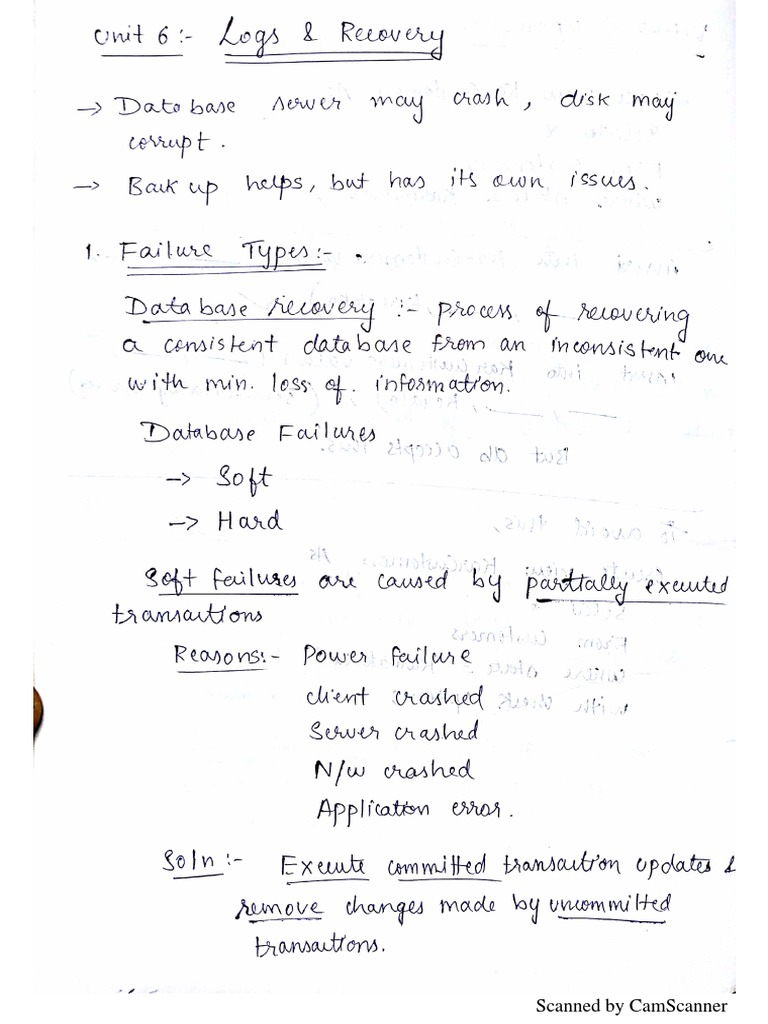 Unit 6 :- Logs & Recovery
→ Database server may crash, disk may
corrupt.
→ Back up helps, but has its own issues.
1. Failure Types :-
Database recovery :- process of recovering
a consistent database from an inconsistent one
with min. loss of. information.
Database Failures
→ Soft
→ Hard
Soft failures are caused by parttally executed
transactions
Reasons :- Power failure
client crashed
Server crashed
N/w crashed
Application error.
Soln :- Execute committed transaction updates &
remove changes made by uncommitted
transactions.
Scanned by CamScanner